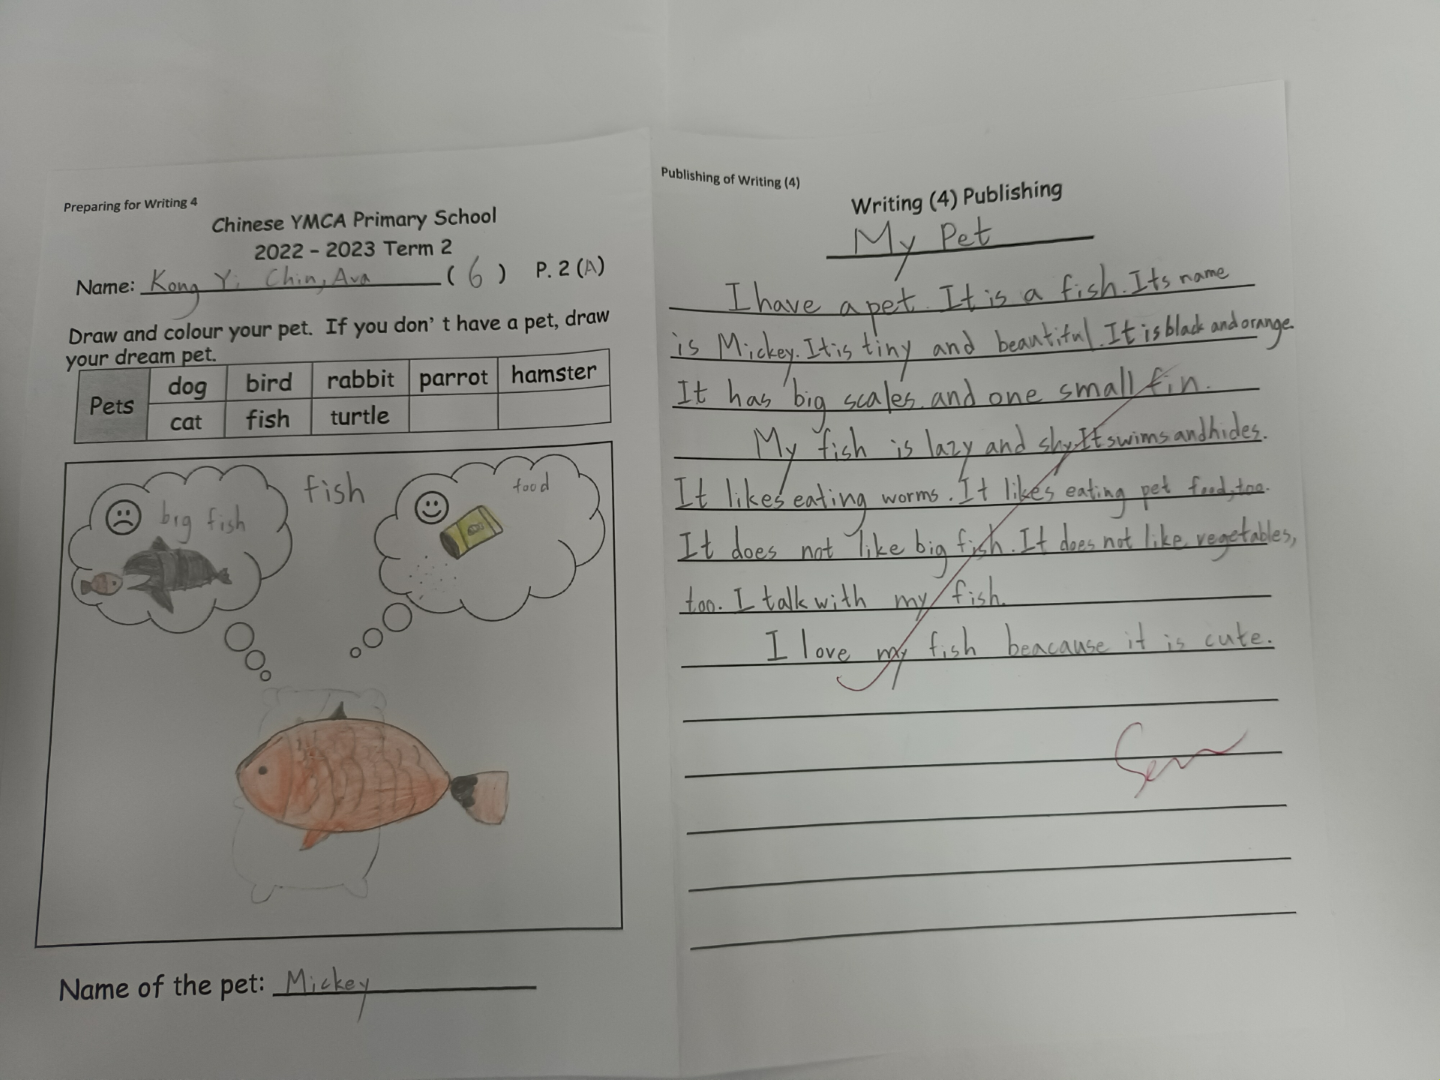 Preparing for Writing 4
Chinese YMCA Primary School
2022 - 2023 Term 2
Name: Kong Yi Chin, Ava ( 6 ) P. 2 (A)
Draw and colour your pet. If you don't have a pet, draw
your dream pet.
Pets dog bird rabbit parrot hamster
cat fish turtle
fish
big fish
food
Name of the pet: Mickey
Publishing of Writing (4)
Writing (4) Publishing
My Pet
I have a pet. It is a fish. Its name
is Mickey. It is tiny and beautiful. It is black and orange.
It has big scales and one small fin.
My fish is lazy and shy. It swims and hides.
It likes eating worms. It likes eating pet food, too.
It does not like big fish. It does not like vegetables,
too. I talk with my fish.
I love my fish beacause it is cute.